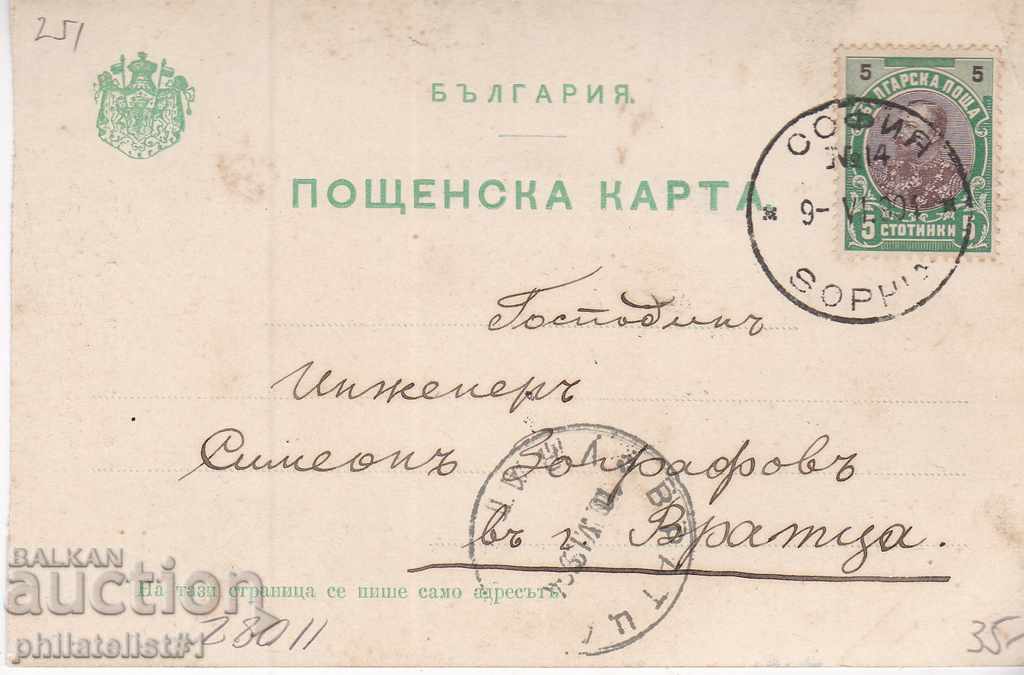 251
БЪЛГАРИЯ.
ПОЩЕНСКА КАРТА.
5 5
БЪЛГАРСКА ПОЩА
5 СТОТИНКИ 5
СОФИЯ
№ 14
9- VI
SOPHIA
Господинъ
Инженеръ
Симеонъ Зографовъ
въ г. Вратца.
ВРАТЦА
На тази страница се пише само адресътъ.
28011
35-
BALKAN
auction
philatelist#1